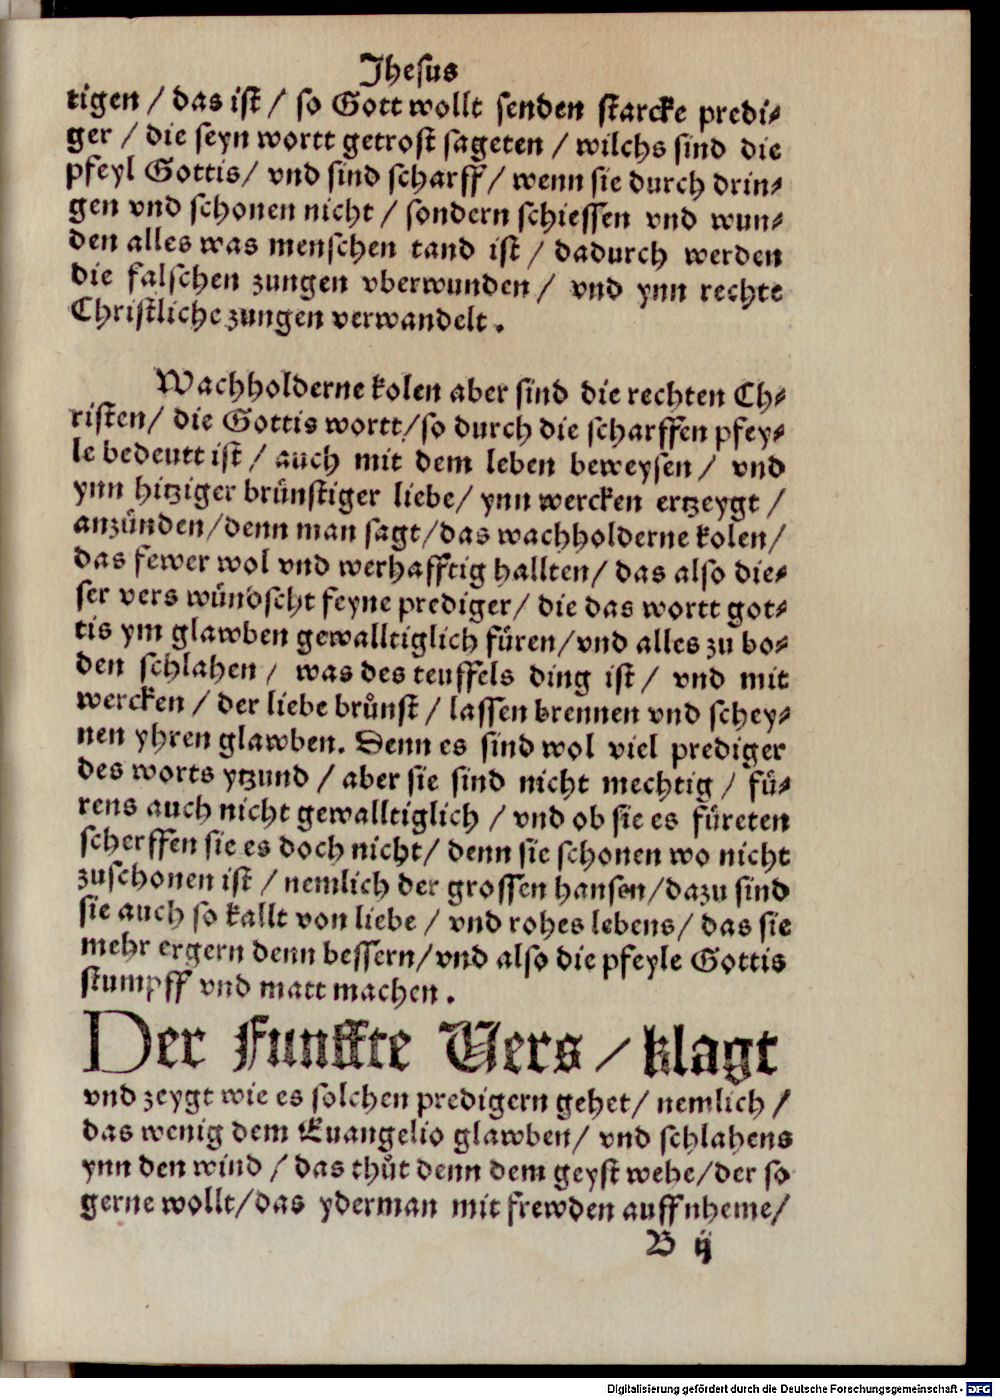 Jhesus
tigen / das ist / so Gott wollt senden starcke predi⸗
ger / die seyn wortt getrost sageten / wilchs sind die
pfeyl Gottis / vnd sind scharff / wenn sie durch drin⸗
gen vnd schonen nicht / sondern schiessen vnd wun⸗
den alles was menschen tand ist / dadurch werden
die falschen zungen vberwunden / vnd ynn rechte
Christliche zungen verwandelt .
Wachholderne kolen aber sind die rechten Ch⸗
risten / die Gottis wortt / so durch die scharffen pfey⸗
le bedeutt ist / auch mit dem leben beweysen / vnd
ynn hitziger brünstiger liebe / ynn wercken ertzeygt /
anzünden / denn man sagt / das wachholderne kolen /
das fewer wol vnd werhafftig hallten / das also die⸗
ser vers wündscht feyne prediger / die das wortt got⸗
tis ym glawben gewalltiglich füren / vnd alles zu bo⸗
den schlahen / was des teuffels ding ist / vnd mit
wercken / der liebe brůnst / lassen brennen vnd schey⸗
nen yhren glawben. Denn es sind wol viel prediger
des worts ytzund / aber sie sind nicht mechtig / fü⸗
rens auch nicht gewalltiglich / vnd ob sie es füreten
scherffen sie es doch nicht / denn sie schonen wo nicht
zuschonen ist / nemlich der grossen hansen / dazu sind
sie auch so kallt von liebe / vnd rohes lebens / das sie
mehr ergern denn bessern / vnd also die pfeyle Gottis
stumpff vnd matt machen .
Der Funffte Vers / klagt
vnd zeygt wie es solchen predigern gehet / nemlich /
das wenig dem Euangelio glawben / vnd schlahens
ynn den wind / das thůt denn dem geyst wehe / der so
gerne wollt / das yderman mit frewden auffnheme /
B ij
Digitalisierung gefördert durch die Deutsche Forschungsgemeinschaft - DFG